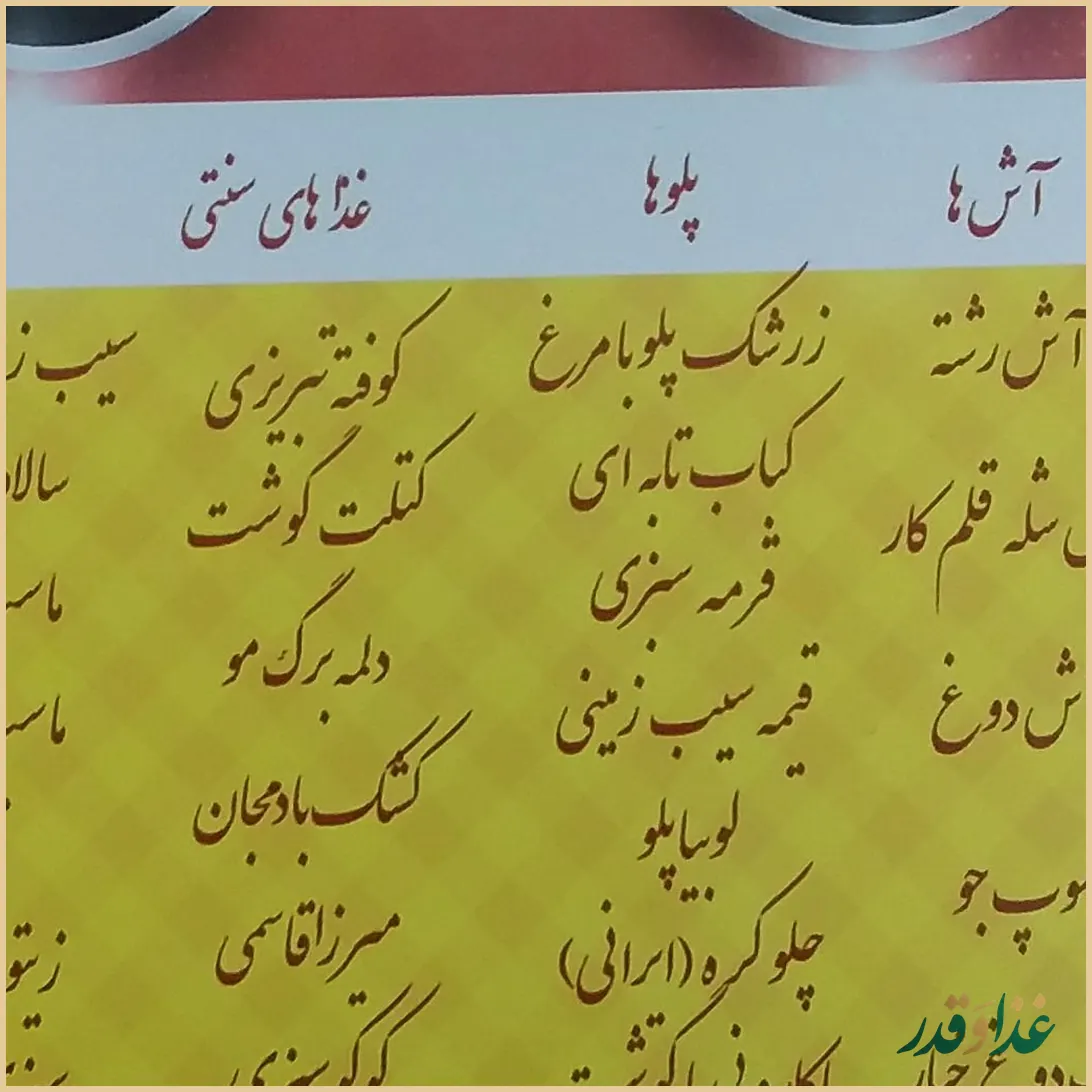 آش‌ها
آش رشته
شله قلم کار
دوغ
جو
پلوها
زرشک پلو با مرغ
کباب تابه ای
قرمه سبزی
قیمه سیب زمینی
لوبیا پلو
چلو کره (ایرانی)
غذاهای سنتی
کوفته تبریزی
کتلت گوشت
دلمه برگ مو
کشک بادمجان
میرزا قاسمی
کوکو سبزی
سیب
غذا و قدر